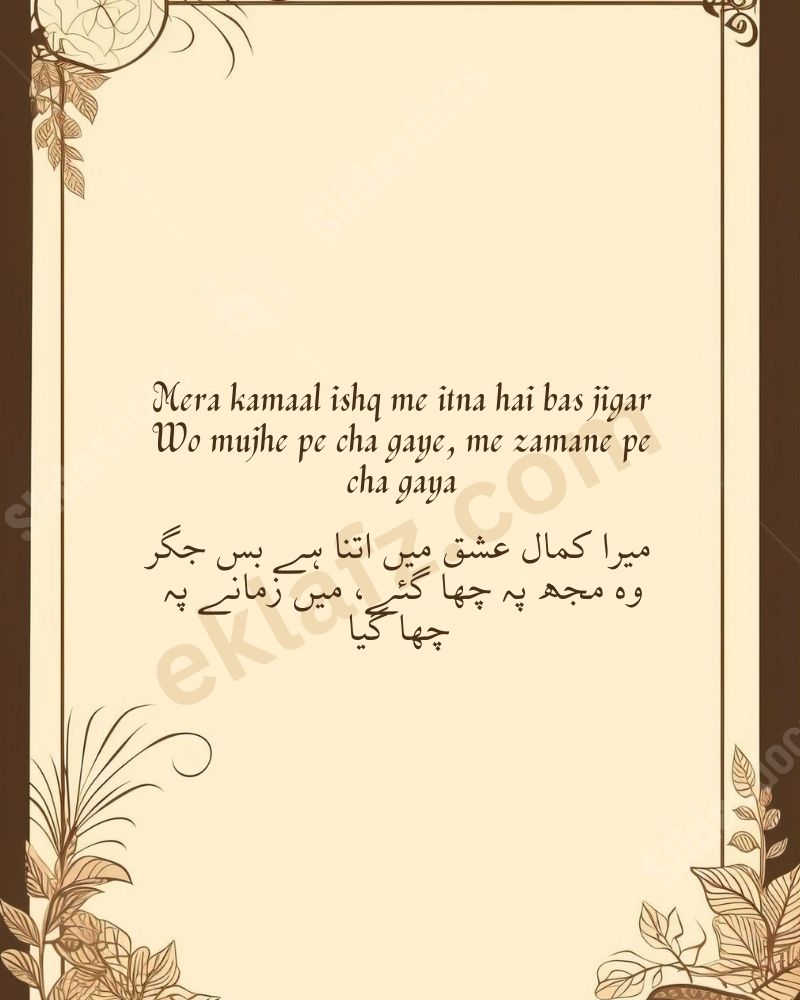 Mera kamaal ishq me itna hai bas jigar
Wo mujhe pe cha gaye, me zamane pe
cha gaya
میرا کمال عشق میں اتنا ہے بس جگر
وہ مجھ پہ چھا گئے، میں زمانے پہ
چھا گیا
eklafz.com
Slidesdocs
Slidesdocs